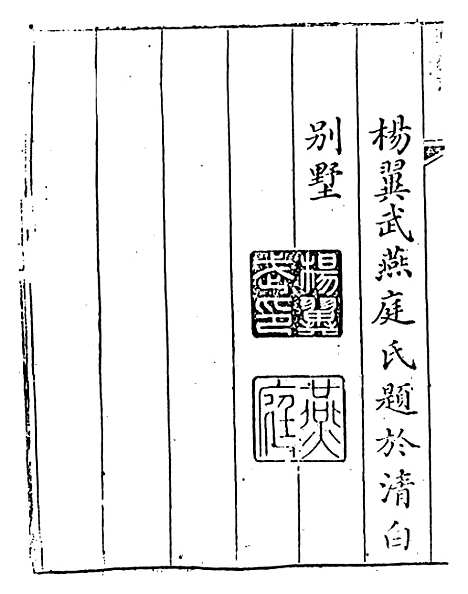 楊翼武燕庭氏題於清白
別墅
楊翼
武印
燕
庭